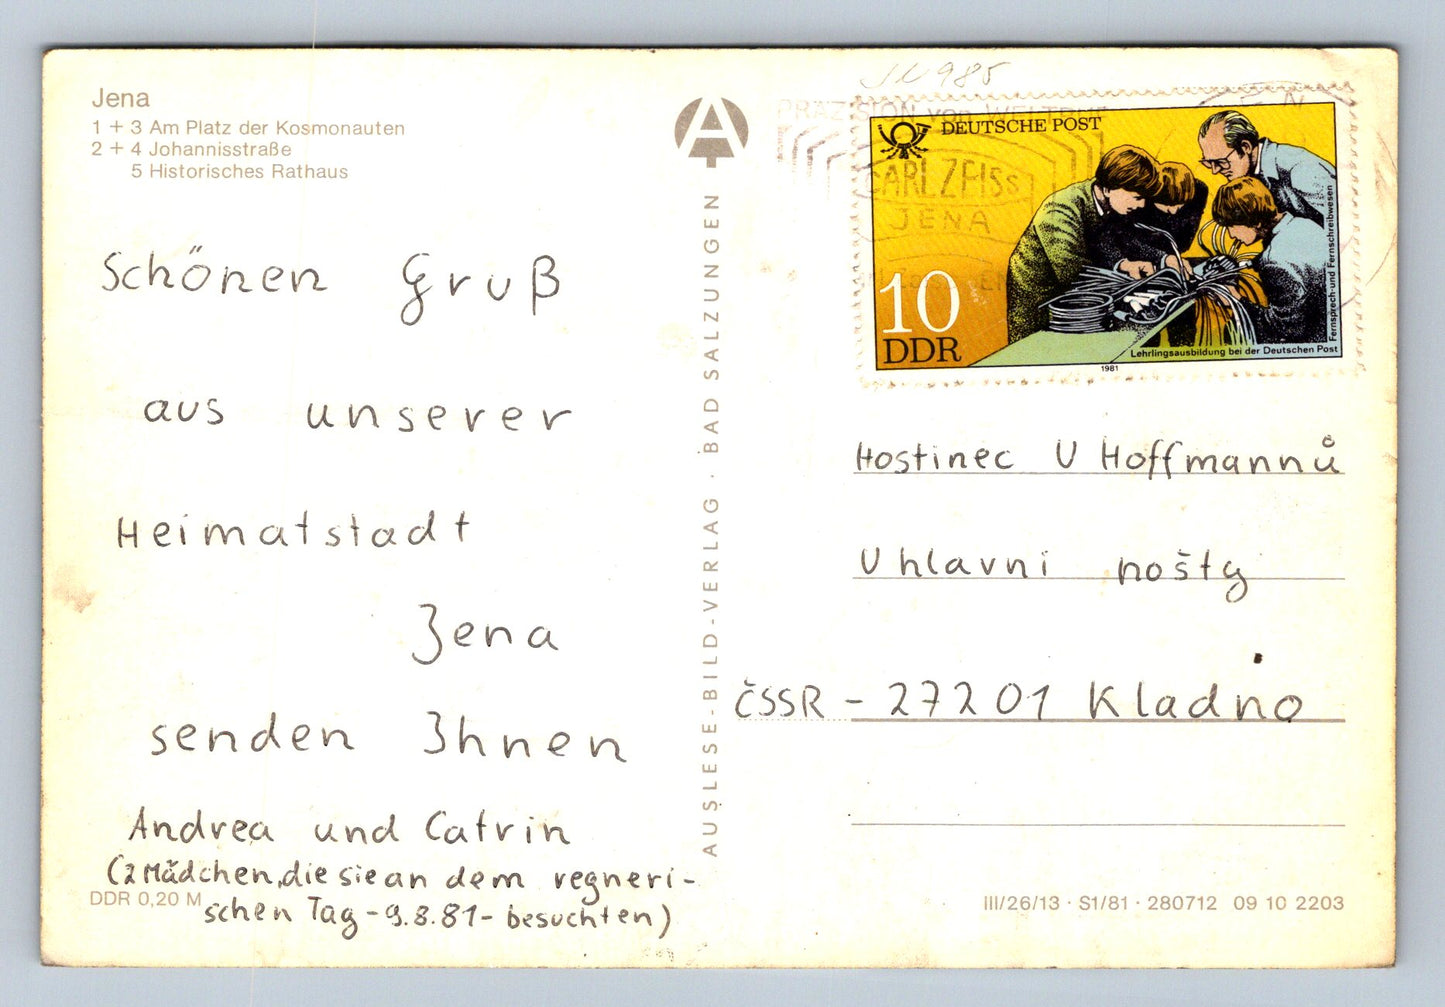 Jena
1 + 3 Am Platz der Kosmonauten
2 + 4 Johannisstraße
5 Historisches Rathaus
Schönen Gruß
aus unserer
Heimatstadt
Jena
senden Ihnen
Andrea und Catrin
(2 Mädchen, die sie an dem regneri-
schen Tag - 9.8.81 - besuchten)
DDR 0,20 M
A
AUSLESE-BILD-VERLAG · BAD SALZUNGEN
PRÄZISION von WELTRUF
CARL ZEISS
JENA
DEUTSCHE POST
10
DDR
Lehrlingsausbildung bei der Deutschen Post
Fernsprech- und Fernschreibwesen
1981
Hostinec U Hoffmannů
U hlavni pošty
ČSSR - 27201 Kladno
III/26/13 · S1/81 · 280712 09 10 2203